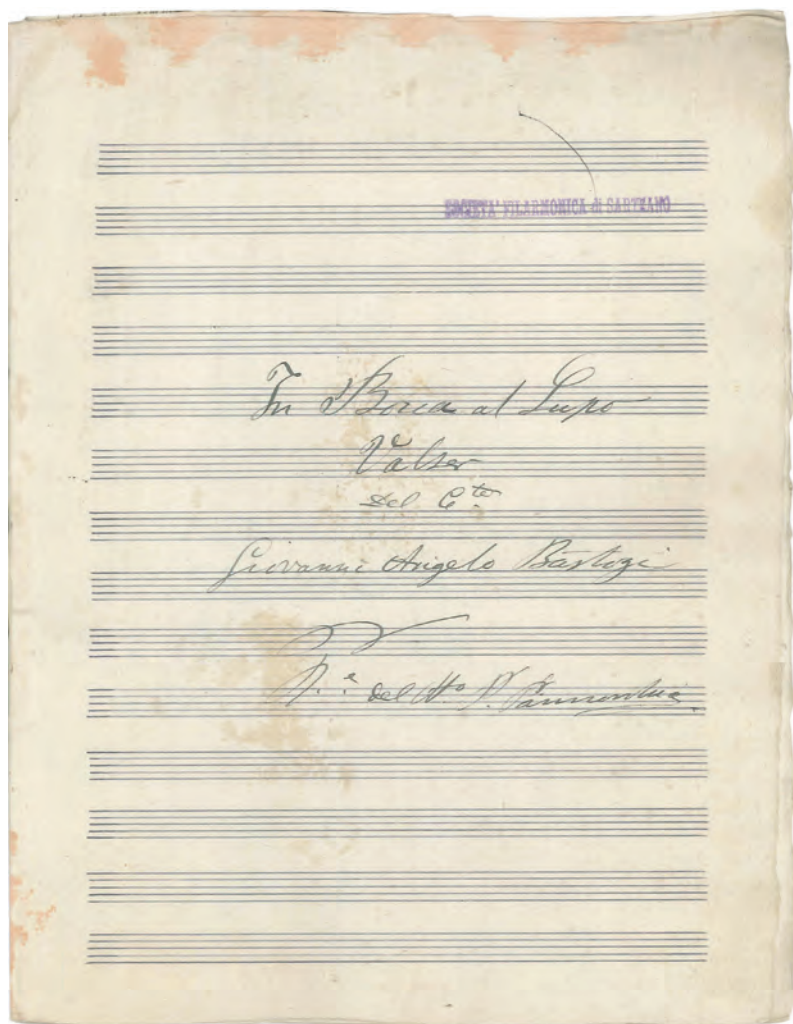 SOCIETA' FILARMONICA di SARTEANO
In Bocca al Lupo
Valzer
Del C.te
Giovanni Angelo Bastogi
del M.o